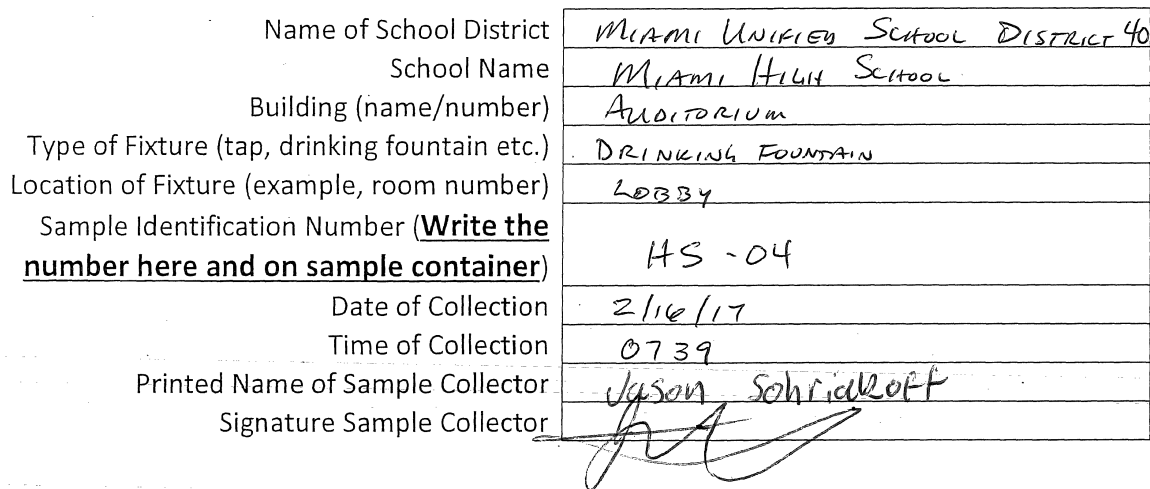 Name of School District MIAMI UNIFIED SCHOOL DISTRICT 40
School Name MIAMI HIGH SCHOOL
Building (name/number) AUDITORIUM
Type of Fixture (tap, drinking fountain etc.) DRINKING FOUNTAIN
Location of Fixture (example, room number) LOBBY
Sample Identification Number (Write the
number here and on sample container) HS - 04
Date of Collection 2/16/17
Time of Collection 0739
Printed Name of Sample Collector Jason
Signature Sample Collector